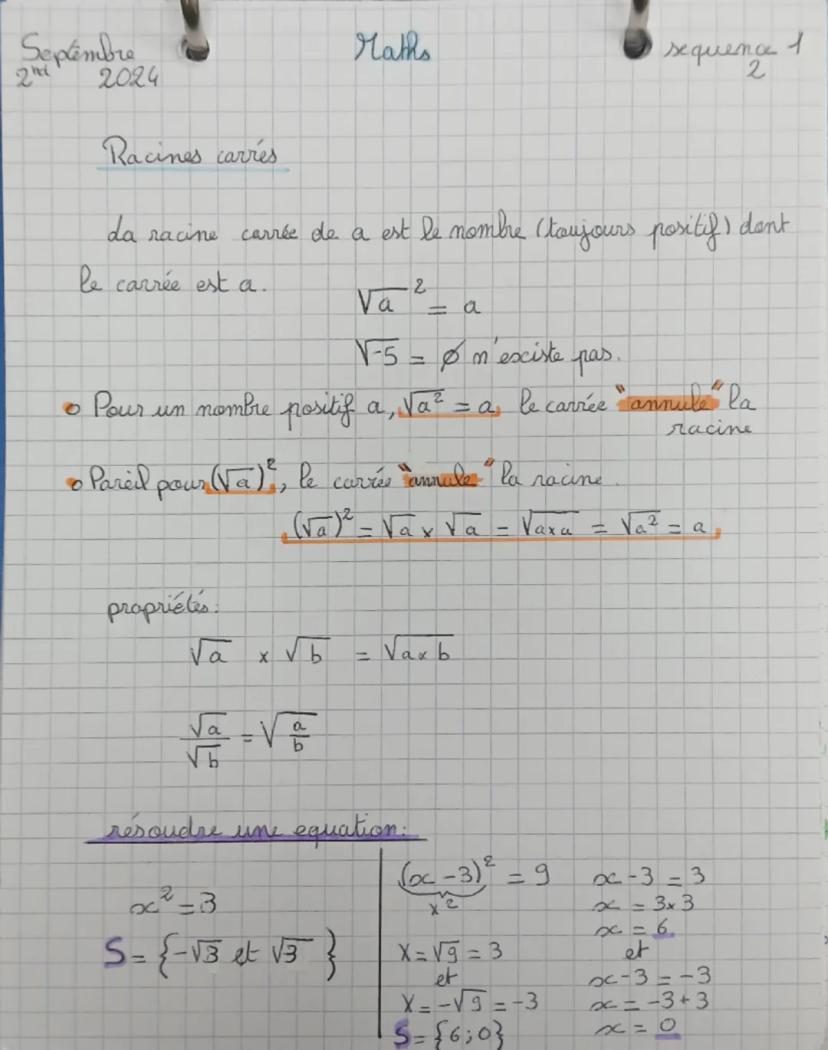 Septembre Maths sequence 1
2nd 2024 2
Racines carrés
La racine carrée de a est le nombre (toujours positif) dont
le carrée est a.
√a ² = a
√-5 = ∅ n'existe pas.
• Pour un nombre positif a, √a² = a, le carrée "annule" la
racine
• Pareil pour (√a)², le carrée "annule" la racine.
(√a)² = √a × √a = √a×a = √a² = a,
propriétés:
√a × √b = √a×b
√a/√b = √a/b
résoudre une equation:
x² = 3
S = {-√3 et √3 }
(x-3)² = 9
X²
X = √9 = 3
et
X = -√9 = -3
S = {6;0}
x-3 = 3
x = 3×3
x = 6
et
x-3 = -3
x = -3+3
x = 0